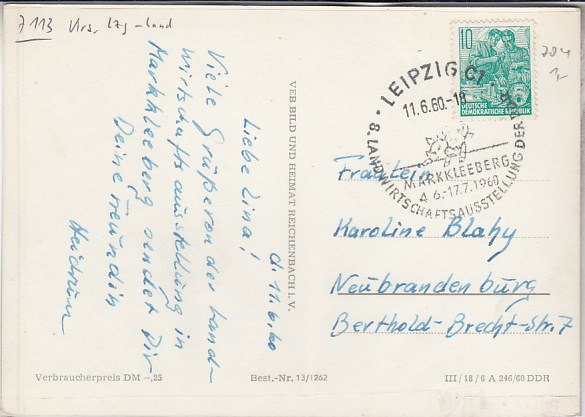 7113 Mrs. Lzg-land
704
LEIPZIG C1
11.6.60.-18
8. LANDWIRTSCHAFTSAUSSTELLUNG DER DDR
MARKKLEEBERG
4.6.-17.7.1960
10
DEUTSCHE
DEMOKRATISCHE REPUBLIK
d. 11.6.60
Liebe Lina!
Viele Grüße von der Land-
wirtschaftsausstellung in
Markkleeberg sendet Dir
Deine Freundin
Heidrun
VEB BILD UND HEIMAT REICHENBACH I. V.
Fräulein
Karoline Blahy
Neubrandenburg
Berthold-Brecht-Str. 7
Verbraucherpreis DM -,25
Best.-Nr. 13/1262
III/18/6 A 246/60 DDR